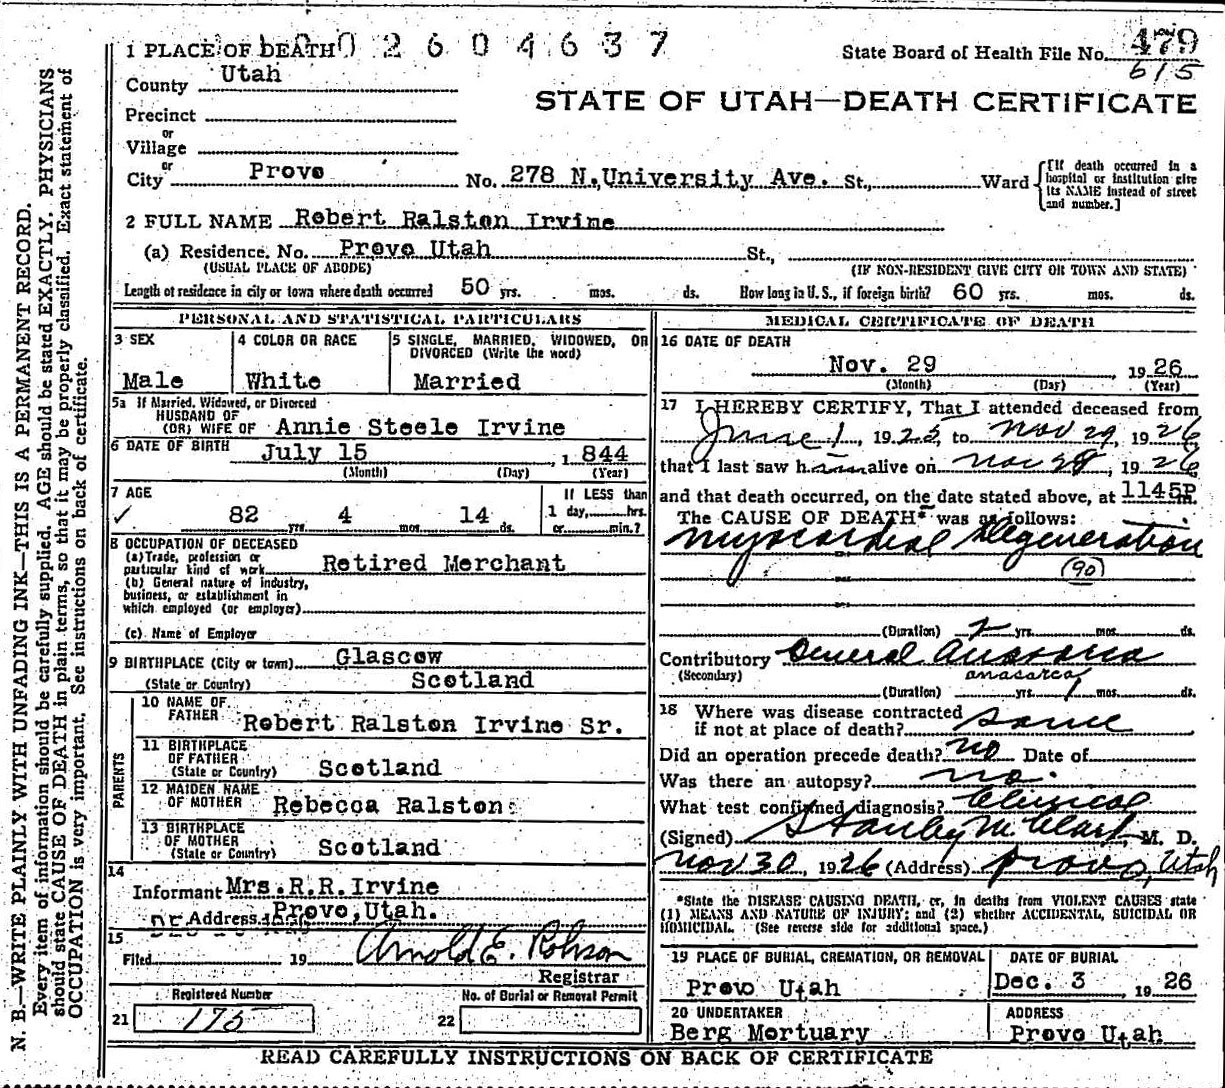 1 PLACE OF DEATH 1 0 0 2 6 0 4 6 3 7
State Board of Health File No. 479
615
County Utah
STATE OF UTAH—DEATH CERTIFICATE
Precinct
or
Village
or
City Provo No. 278 N. University Ave. St., Ward
[If death occurred in a hospital or institution give its NAME instead of street and number.]
2 FULL NAME Robert Ralston Irvine
(a) Residence. No. Provo Utah St.,
(USUAL PLACE OF ABODE) (IF NON-RESIDENT GIVE CITY OR TOWN AND STATE)
Length of residence in city or town where death occurred 50 yrs. mos. ds. How long in U. S., if foreign birth? 60 yrs. mos. ds.
PERSONAL AND STATISTICAL PARTICULARS
3 SEX
Male
4 COLOR OR RACE
White
5 SINGLE, MARRIED, WIDOWED, OR DIVORCED (Write the word)
Married
5a If Married, Widowed, or Divorced
HUSBAND OF
(OR) WIFE OF Annie Steele Irvine
6 DATE OF BIRTH July 15, 1844
(Month) (Day) (Year)
7 AGE
✓ 82 yrs. 4 mos. 14 ds.
If LESS than
1 day, hrs.
or min.?
8 OCCUPATION OF DECEASED
(a) Trade, profession or
particular kind of work Retired Merchant
(b) General nature of industry,
business, or establishment in
which employed (or employer)
(c) Name of Employer
9 BIRTHPLACE (City or town) Glascow
(State or Country) Scotland
PARENTS
10 NAME OF
FATHER Robert Ralston Irvine Sr.
11 BIRTHPLACE
OF FATHER
(State or Country) Scotland
12 MAIDEN NAME
OF MOTHER Rebecca Ralston
13 BIRTHPLACE
OF MOTHER
(State or Country) Scotland
14
Informant Mrs. R.R. Irvine
Address Provo, Utah.
15
Filed 19 Arnold E. Robison
Registrar
Registered Number
21 175
No. of Burial or Removal Permit
22
MEDICAL CERTIFICATE OF DEATH
16 DATE OF DEATH
Nov. 29 1926
(Month) (Day) (Year)
17 I HEREBY CERTIFY, That I attended deceased from
June 1, 1925, to Nov 29, 1926,
that I last saw him alive on Nov 28, 1926
and that death occurred, on the date stated above, at 1145P m.
The CAUSE OF DEATH* was as follows:
Myocardial Degeneration
(90)
(Duration) 2 yrs. mos. ds.
Contributory General Anasarca
(Secondary) anasarca
(Duration) yrs. 1 mos. ds.
18 Where was disease contracted
if not at place of death? Same
Did an operation precede death? no Date of
Was there an autopsy? no.
What test confirmed diagnosis? Clinical
(Signed) Stanley M. Clark, M. D.
Nov 30, 1926 (Address) Provo, Utah
*State the DISEASE CAUSING DEATH, or, in deaths from VIOLENT CAUSES state
(1) MEANS AND NATURE OF INJURY; and (2) whether ACCIDENTAL, SUICIDAL OR
HOMICIDAL. (See reverse side for additional space.)
19 PLACE OF BURIAL, CREMATION, OR REMOVAL
Provo Utah
DATE OF BURIAL
Dec. 3 1926
20 UNDERTAKER
Berg Mortuary
ADDRESS
Provo Utah
READ CAREFULLY INSTRUCTIONS ON BACK OF CERTIFICATE
N. B.—WRITE PLAINLY WITH UNFADING INK—THIS IS A PERMANENT RECORD.
Every item of information should be carefully supplied. AGE should be stated EXACTLY. PHYSICIANS
should state CAUSE OF DEATH in plain terms, so that it may be properly classified. Exact statement of
OCCUPATION is very important. See instructions on back of certificate.